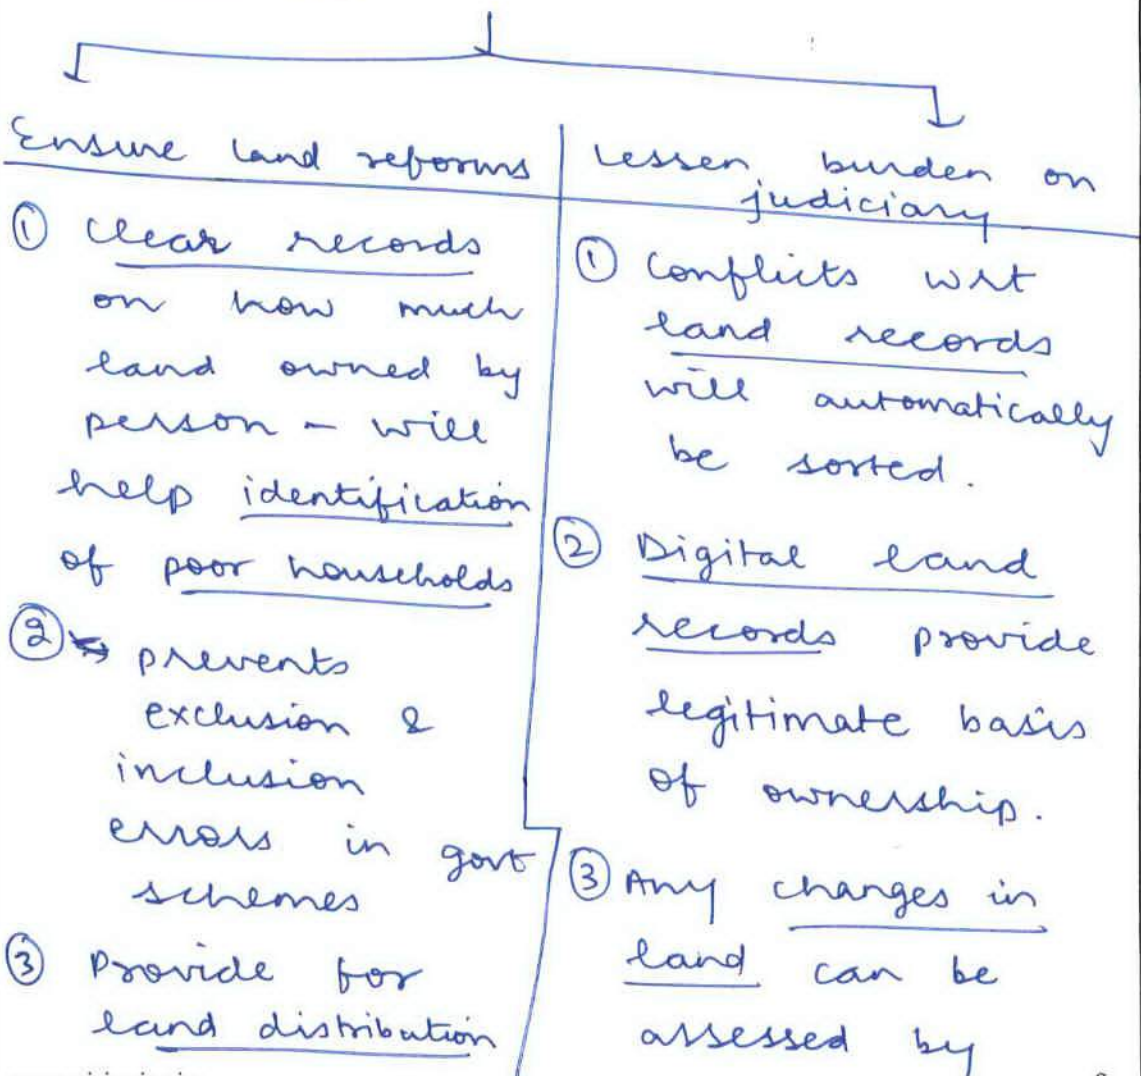 Ensure land reforms
① Clear records
on how much
land owned by
person - will
help identification
of poor households
② prevents
exclusion &
inclusion
errors in govt
schemes
③ Provide for
land distribution
Lessen burden on
judiciary
① Conflicts wrt
land records
will automatically
be sorted.
② Digital land
records provide
legitimate basis
of ownership.
③ Any changes in
land can be
assessed by